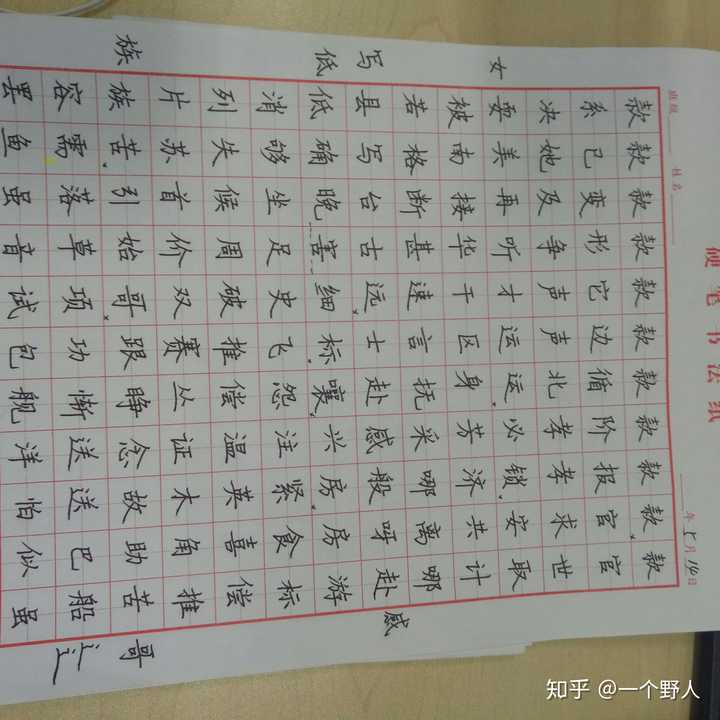 硬笔书法纸
班级 姓名 年5月14日
款款款款款款款款款款款
系已变形它边循阶报官官
决她及争声声北孝孝求世
女
要美再听才运运必锁安取
被南接华干区身芳济共计
若格断甚速言抚采哪离哪
写
县写台古远士赴感般呀赴
感
低
低确晚害细标嚷兴房房游
消够坐足史飞怨注紧食标
列失候周破推偿温英喜偿
片苏首价双赛丛证木角推
族
族苦引始哥跟睁念故助苦
哥
容需落草项功惭送送巴船
罢鱼虽音试包舰洋怕似虽
知乎 @一个野人